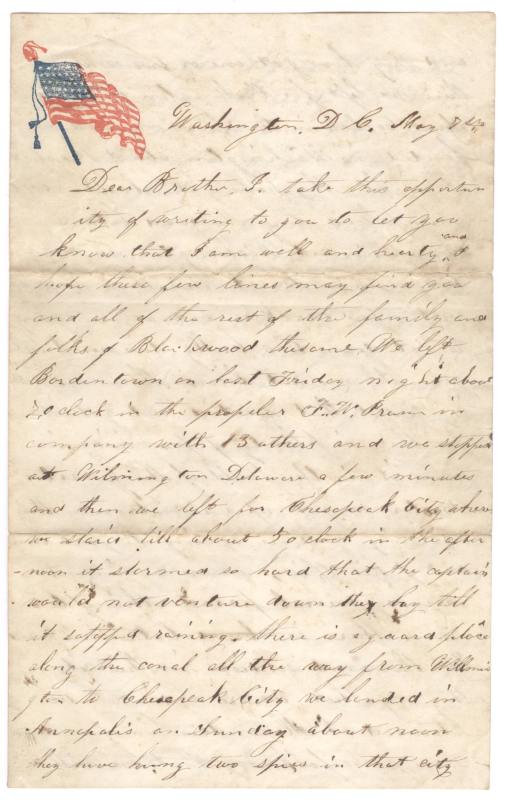 Washington, D C. May 7th
Dear Brother, I take this opportun
ity of writing to you to let you
know that I am well and hearty and I
hope these few lines may find you
and all of the rest of the family and
folks of Blackwood the same. We left
Bordentown on last Friday night about
7 o clock in the propeler F. W. in
company with 13 others and we stopped
at Wilmington Delaware a few minutes
and then we left for Chesapeak City where
we staid till about 5 o clock in the after
noon it stormed so hard that the captain
would not venture down they bay till
it stopped raining. there is a guard place
along the canal all the way from Willmi
gton to Chesapeak City we landed in
Annapolis on Sunday about noon
they have hung two spies in that city